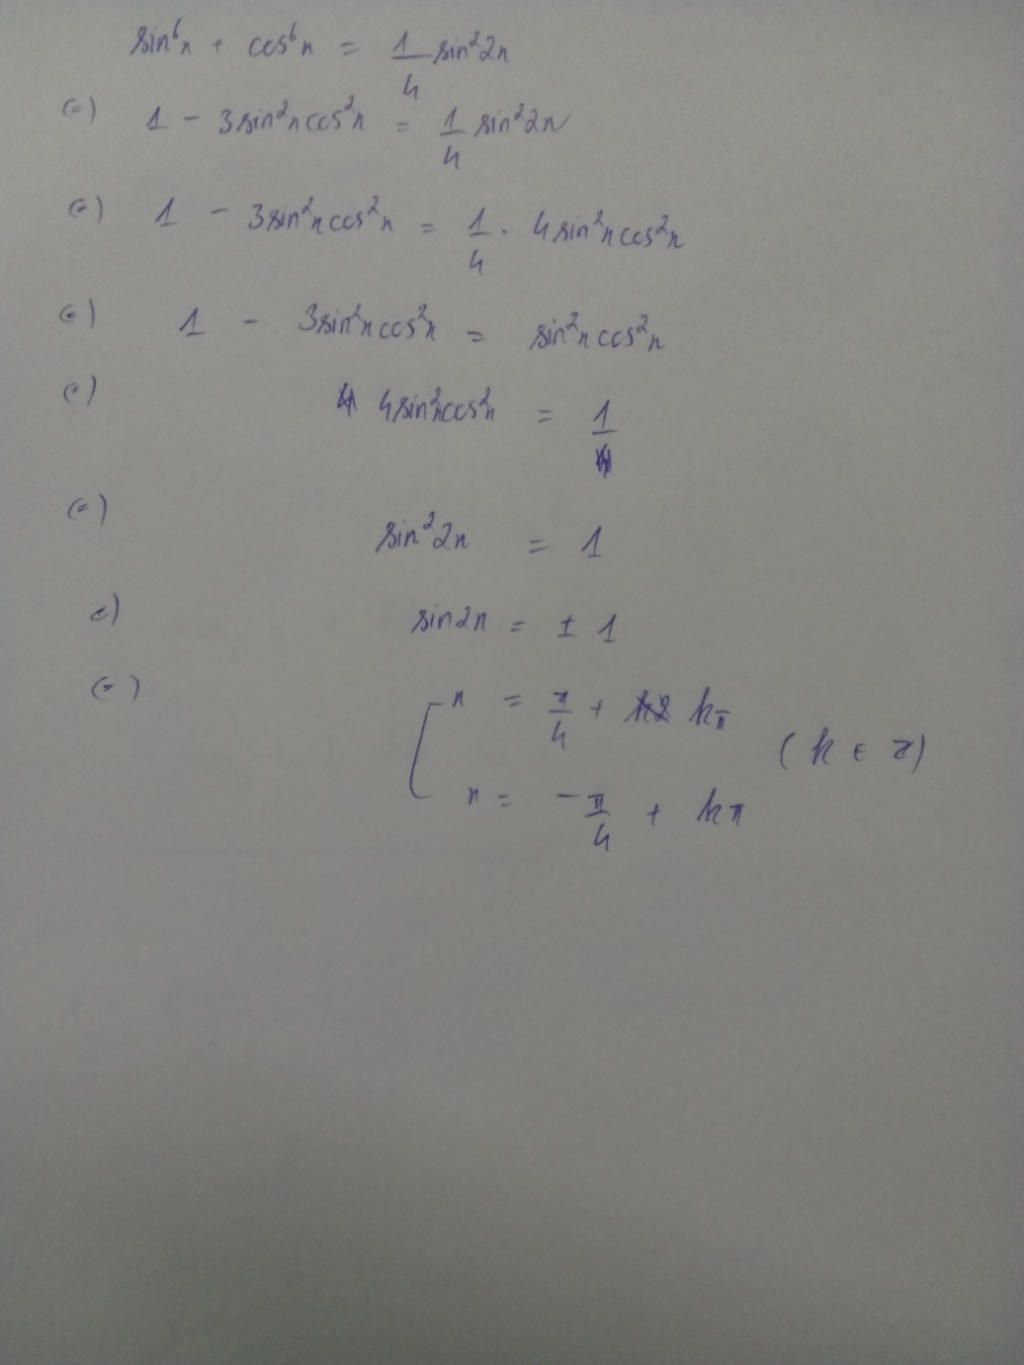 sin⁶x + cos⁶x = 1/4 sin²2x
(=) 1 - 3sin²xcos²x = 1/4 sin²2x
(=) 1 - 3sin²xcos²x = 1/4 . 4sin²xcos²x
(=) 1 - 3sin²xcos²x = sin²xcos²x
(=) 4sin²xcos²x = 1
(=) sin²2x = 1
(=) sin2x = ± 1
(=) [ x = π/4 + kπ
x = -π/4 + kπ (k ∈ Z)